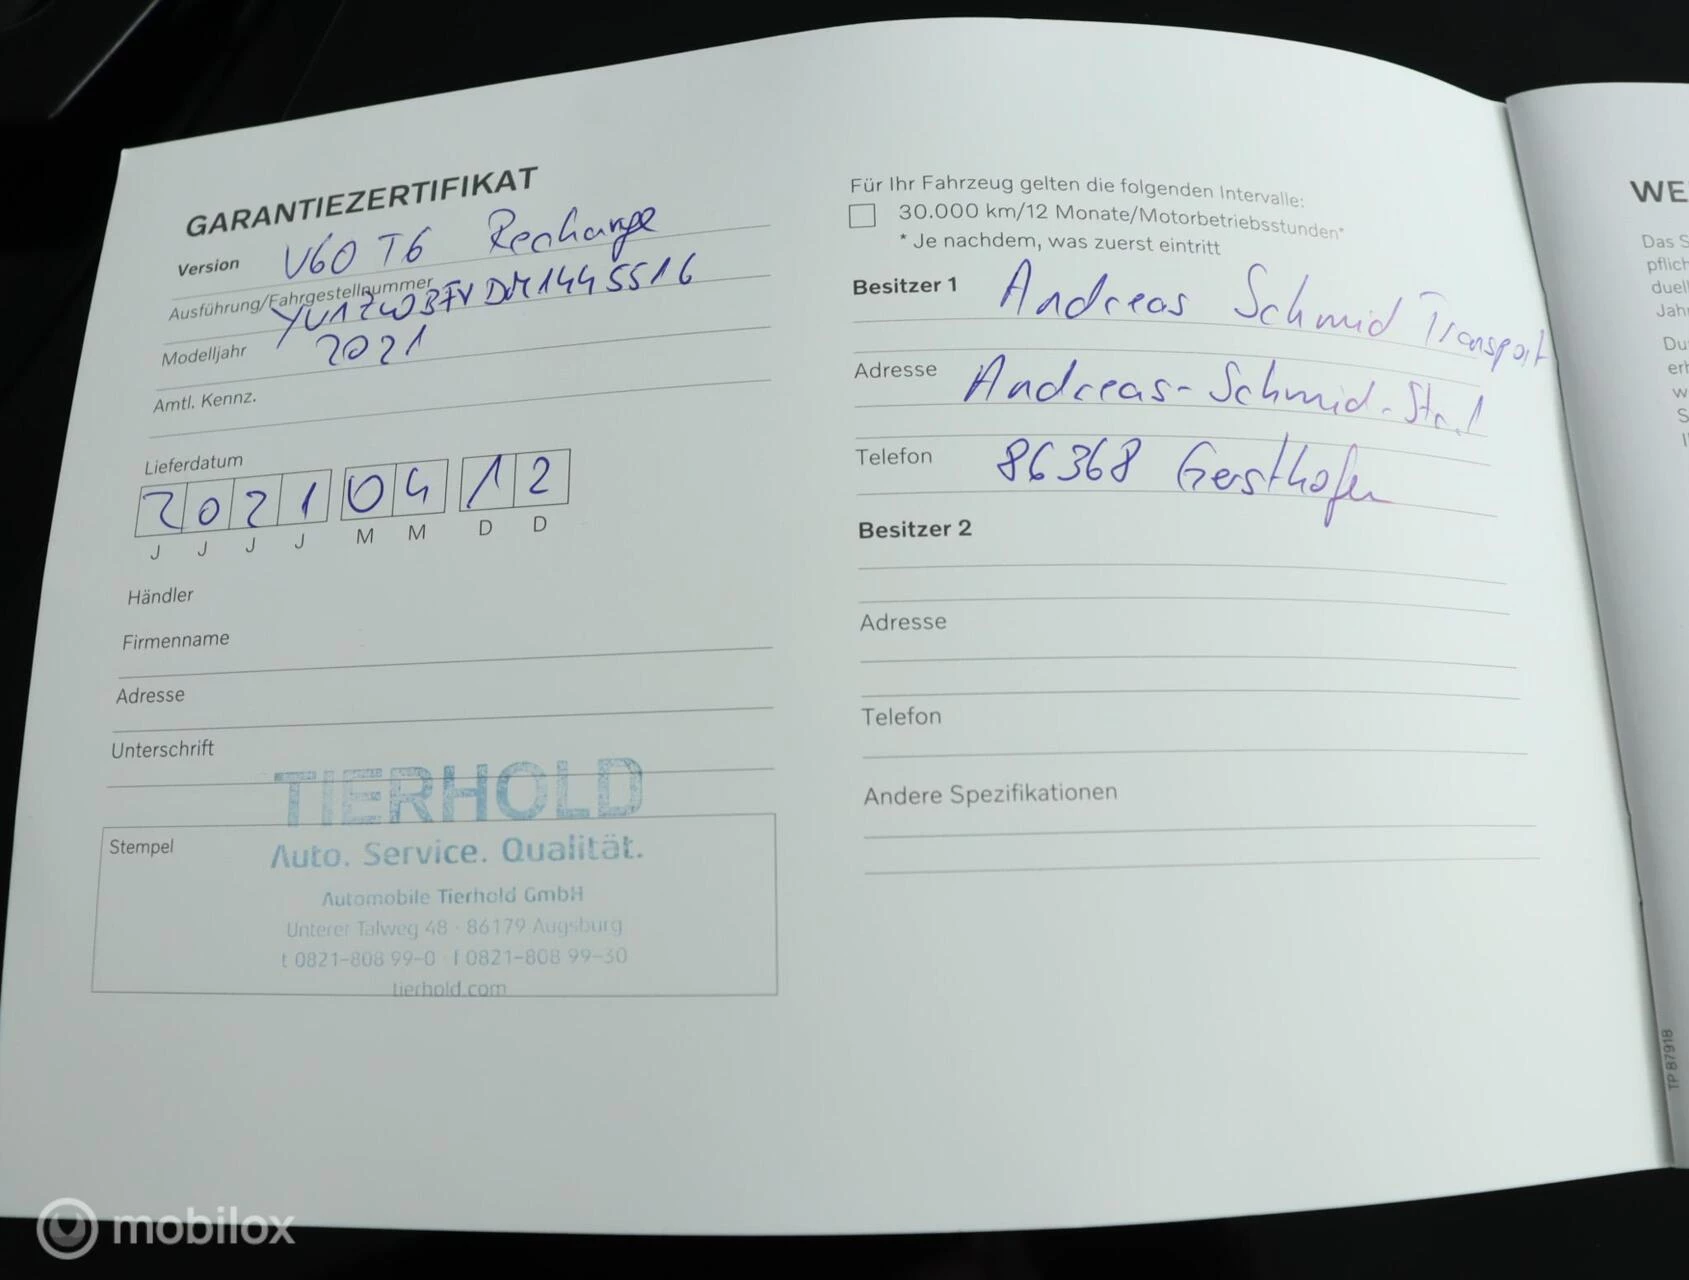 GARANTIEZERTIFIKAT
Version V60 T6 Recharge
Ausführung/Fahrgestellnummer
Modelljahr 2021
Amtl. Kennz.
Lieferdatum
2 0 2 1 0 4 1 2
J J J J M M D D
Händler
Firmenname
Adresse
Unterschrift
TIERHOLD
Stempel
Auto. Service. Qualität.
Automobile Tierhold GmbH
Unterer Talweg 48 · 86179 Augsburg
t 0821-808 99-0 · f 0821-808 99-30
tierhold.com
Für Ihr Fahrzeug gelten die folgenden Intervalle:
30.000 km/12 Monate/Motorbetriebsstunden*
* Je nachdem, was zuerst eintritt
Besitzer 1 Andreas Schmid Transport
Adresse Andreas-Schmid-Str. 1
Telefon 86368 Gersthofen
Besitzer 2
Adresse
Telefon
Andere Spezifikationen
WE
Das S
pflich
duell
Jahr
Du
erh
w
S
TP 87918
mobilox